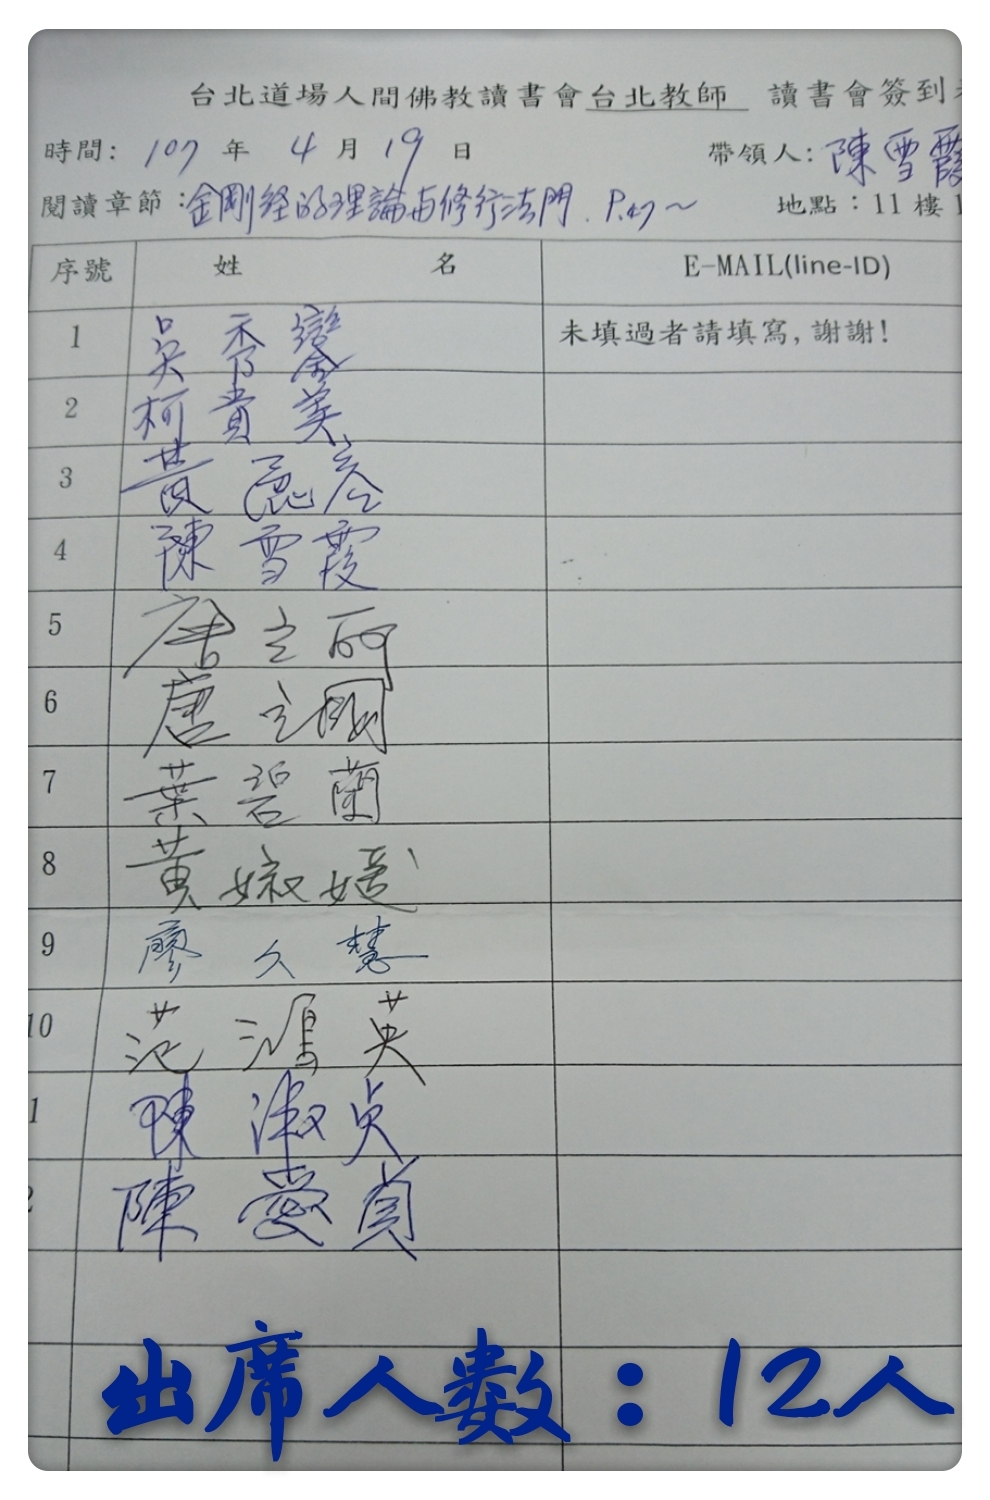 台北道場人間佛教讀書會台北教師 讀書會簽到
時間: 107 年 4 月 19 日 帶領人: 陳雪霞
閱讀章節:金剛經的理論与修行法門. P.47~ 地點:11樓1
序號 姓 名 E-MAIL(line-ID)
1 吳秀鑾 未填過者請填寫,謝謝!
2 柯貴美
3 黃
4 陳雪霞
5 唐立
6 唐立
7 葉碧蘭
8 黃媛
9 廖久慧
10 范鴻英
1 陳淑貞
2 陳愛貞
出席人數:12人